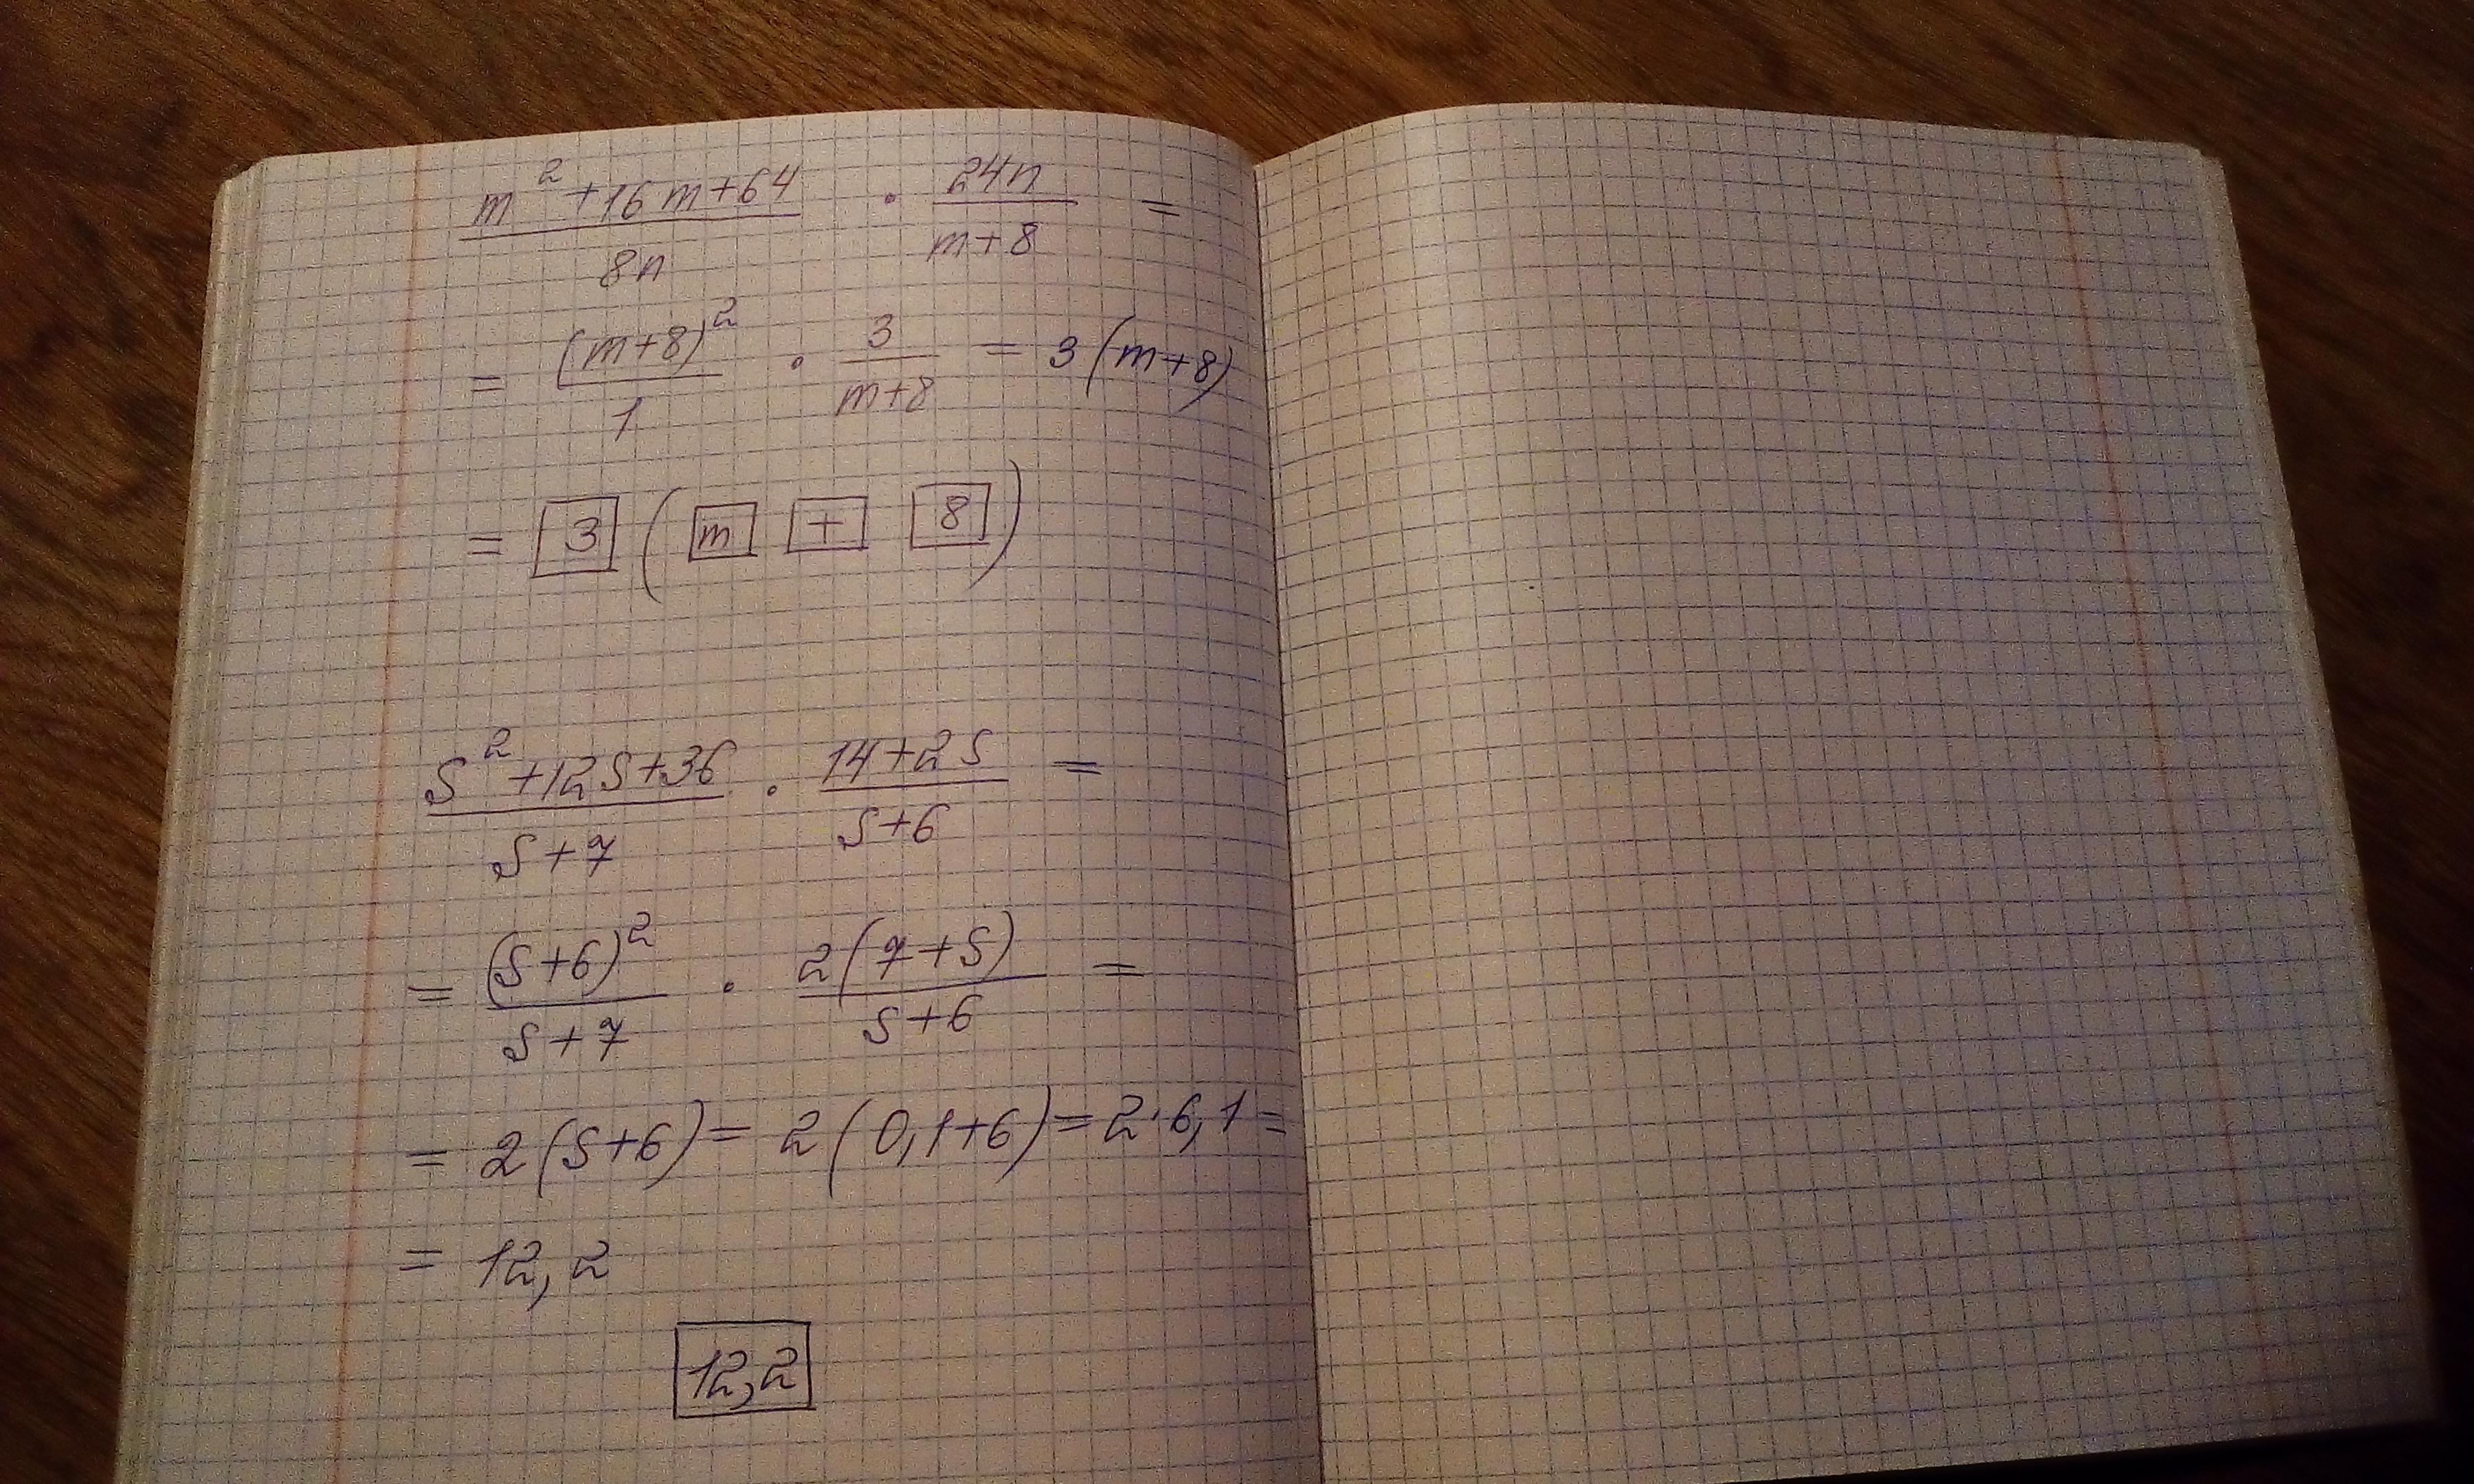 m² + 16m + 64 / 8n · 24n / m+8 =
= (m+8)² / 1 · 3 / m+8 = 3(m+8)
= 3 (m + 8)
S² + 12S + 36 / S+7 · 14+2S / S+6 =
= (S+6)² / S+7 · 2(7+S) / S+6 =
= 2(S+6) = 2(0,1+6) = 2·6,1 =
= 12,2
12,2